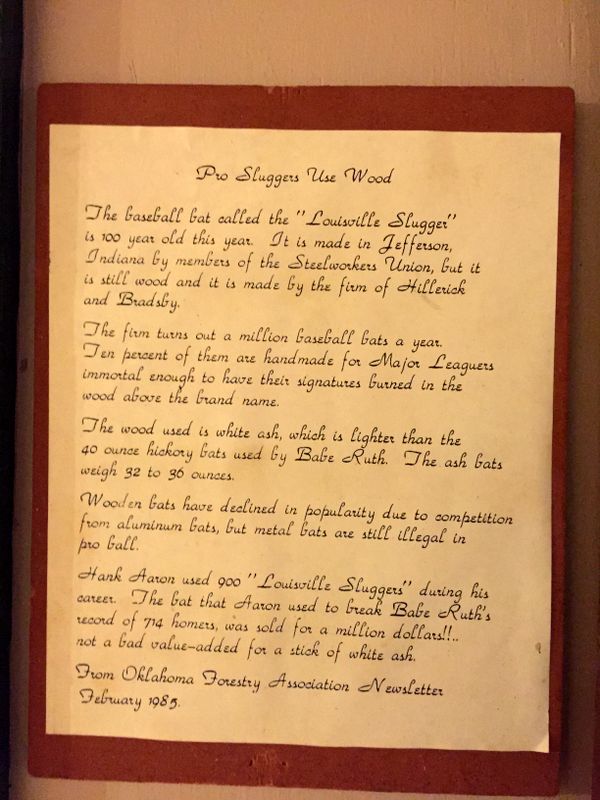 Pro Sluggers Use Wood
The baseball bat called the "Louisville Slugger"
is 100 year old this year. It is made in Jefferson,
Indiana by members of the Steelworkers Union, but it
is still wood and it is made by the firm of Hillerick
and Bradsby.
The firm turns out a million baseball bats a year.
Ten percent of them are handmade for Major Leaguers
immortal enough to have their signatures burned in the
wood above the brand name.
The wood used is white ash, which is lighter than the
40 ounce hickory bats used by Babe Ruth. The ash bats
weigh 32 to 36 ounces.
Wooden bats have declined in popularity due to competition
from aluminum bats, but metal bats are still illegal in
pro ball.
Hank Aaron used 900 "Louisville Sluggers" during his
career. The bat that Aaron used to break Babe Ruth's
record of 714 homers, was sold for a million dollars!!..
not a bad value-added for a stick of white ash.
From Oklahoma Forestry Association Newsletter
February 1985.